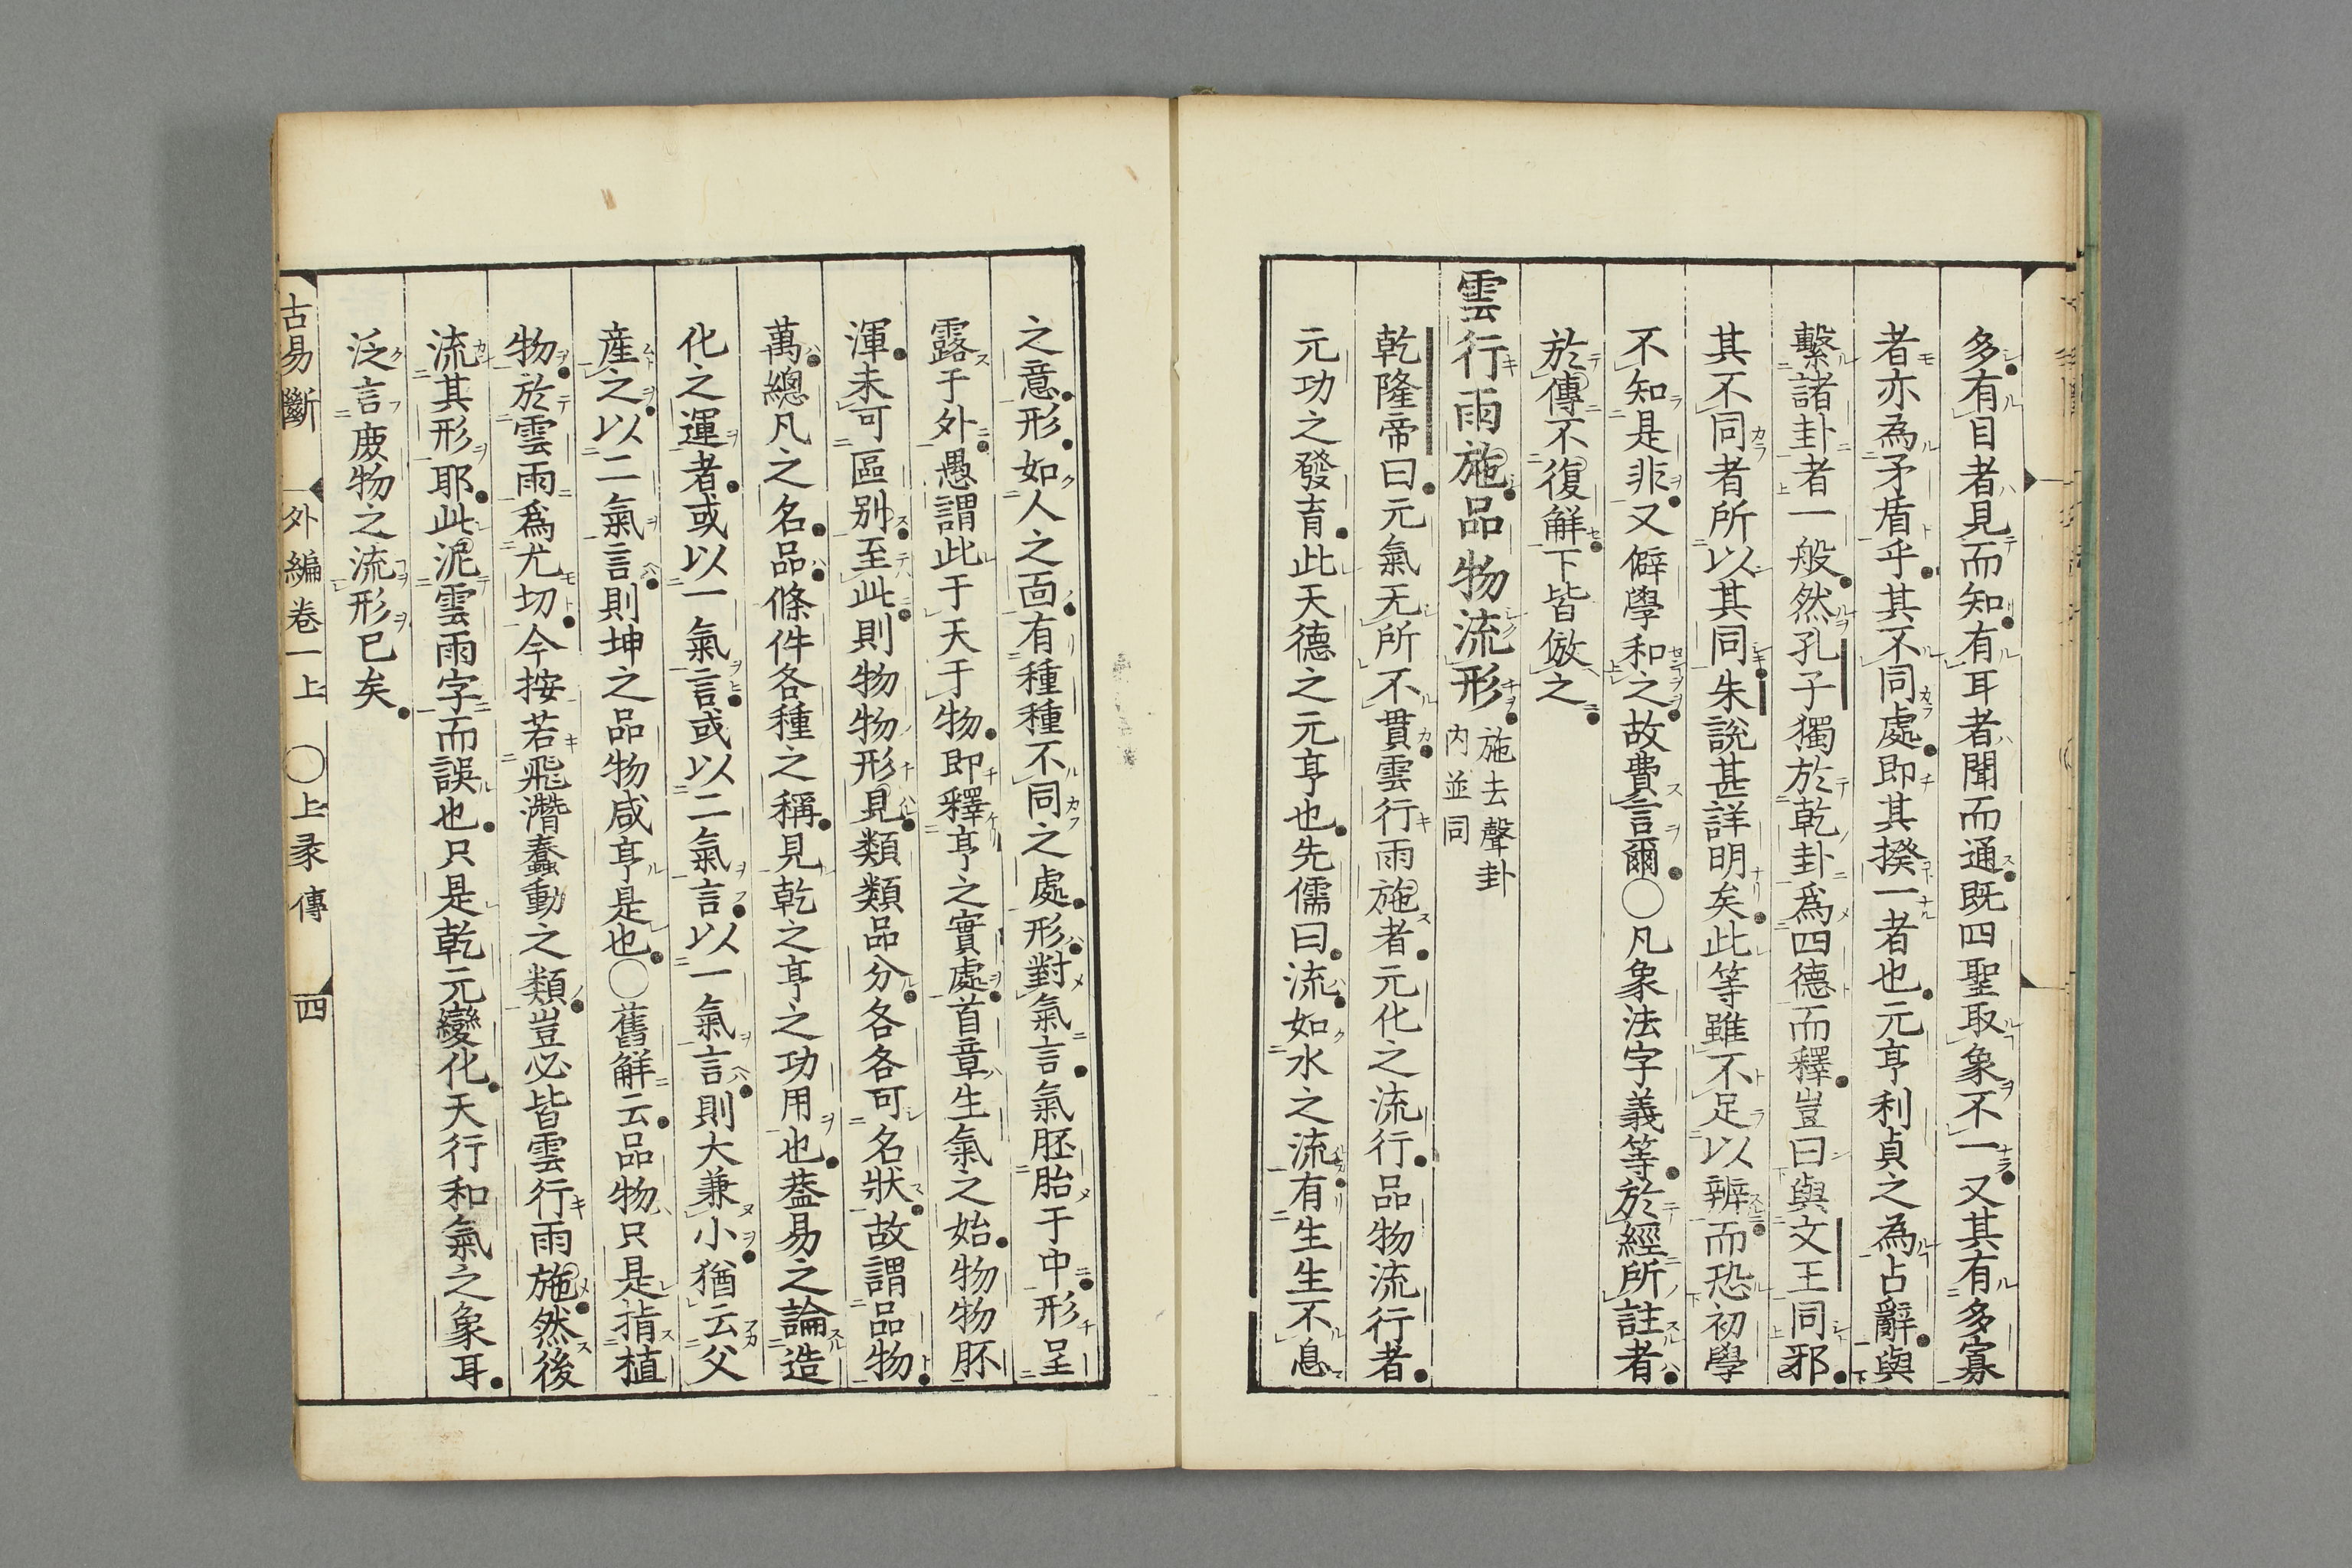 多有目者見而知有耳者聞而通既四聖取象不一又其有多寡
者亦為矛盾乎其不同處即其揆一者也元亨利貞之為占辭與
繫諸卦者一般然孔子獨於乾卦爲四德而釋豈曰與文王同邪
其不同者所以其同朱說甚詳明矣此等雖不足以辨而恐初學
不知是非又僻學和之故費言爾○凡象法字義等於經所註者
於傳不復解下皆倣之
雲行雨施品物流形
施去聲卦
內並同
乾隆帝曰元氣无所不貫雲行雨施者元化之流行品物流行者
元功之發育此天德之元亨也先儒曰流如水之流有生生不息
之意形如人之面有種種不同之處形對氣言氣胚胎于中形呈
露于外愚謂此于天于物即釋亨之實處首章生氣之始物物胚
渾未可區别至此則物物形見類類品分各各可名狀故謂品物
萬總凡之名品條件各種之稱見乾之亨之功用也葢易之論造
化之運者或以一氣言或以二氣言以一氣言則大兼小猶云父
産之以二氣言則坤之品物咸亨是也○舊解云品物只是指植
物於雲雨爲尤切今按若飛潛蠢動之類豈必皆雲行雨施然後
流其形耶此泥雲雨字而誤也只是乾元變化天行和氣之象耳
泛言庻物之流形已矣
古易斷　外編卷一上　○上彖傳　四